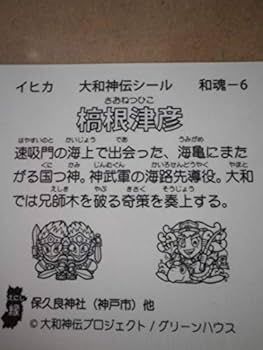 イヒカ 大和神伝シール 和魂－6
さおねつひこ
槁根津彦
はやすいのと かいじょう であ うみがめ
速吸門の海上で出会った、海亀にまた
くに かみ じんむぐん かいろせんどうやく やまと
がる国つ神。神武軍の海路先導役。大和
えしき やぶ きさく そうじょう
では兄師木を破る奇策を奏上する。
えにし
縁
保久良神社（神戸市）他
©大和神伝プロジェクト/グリーンハウス